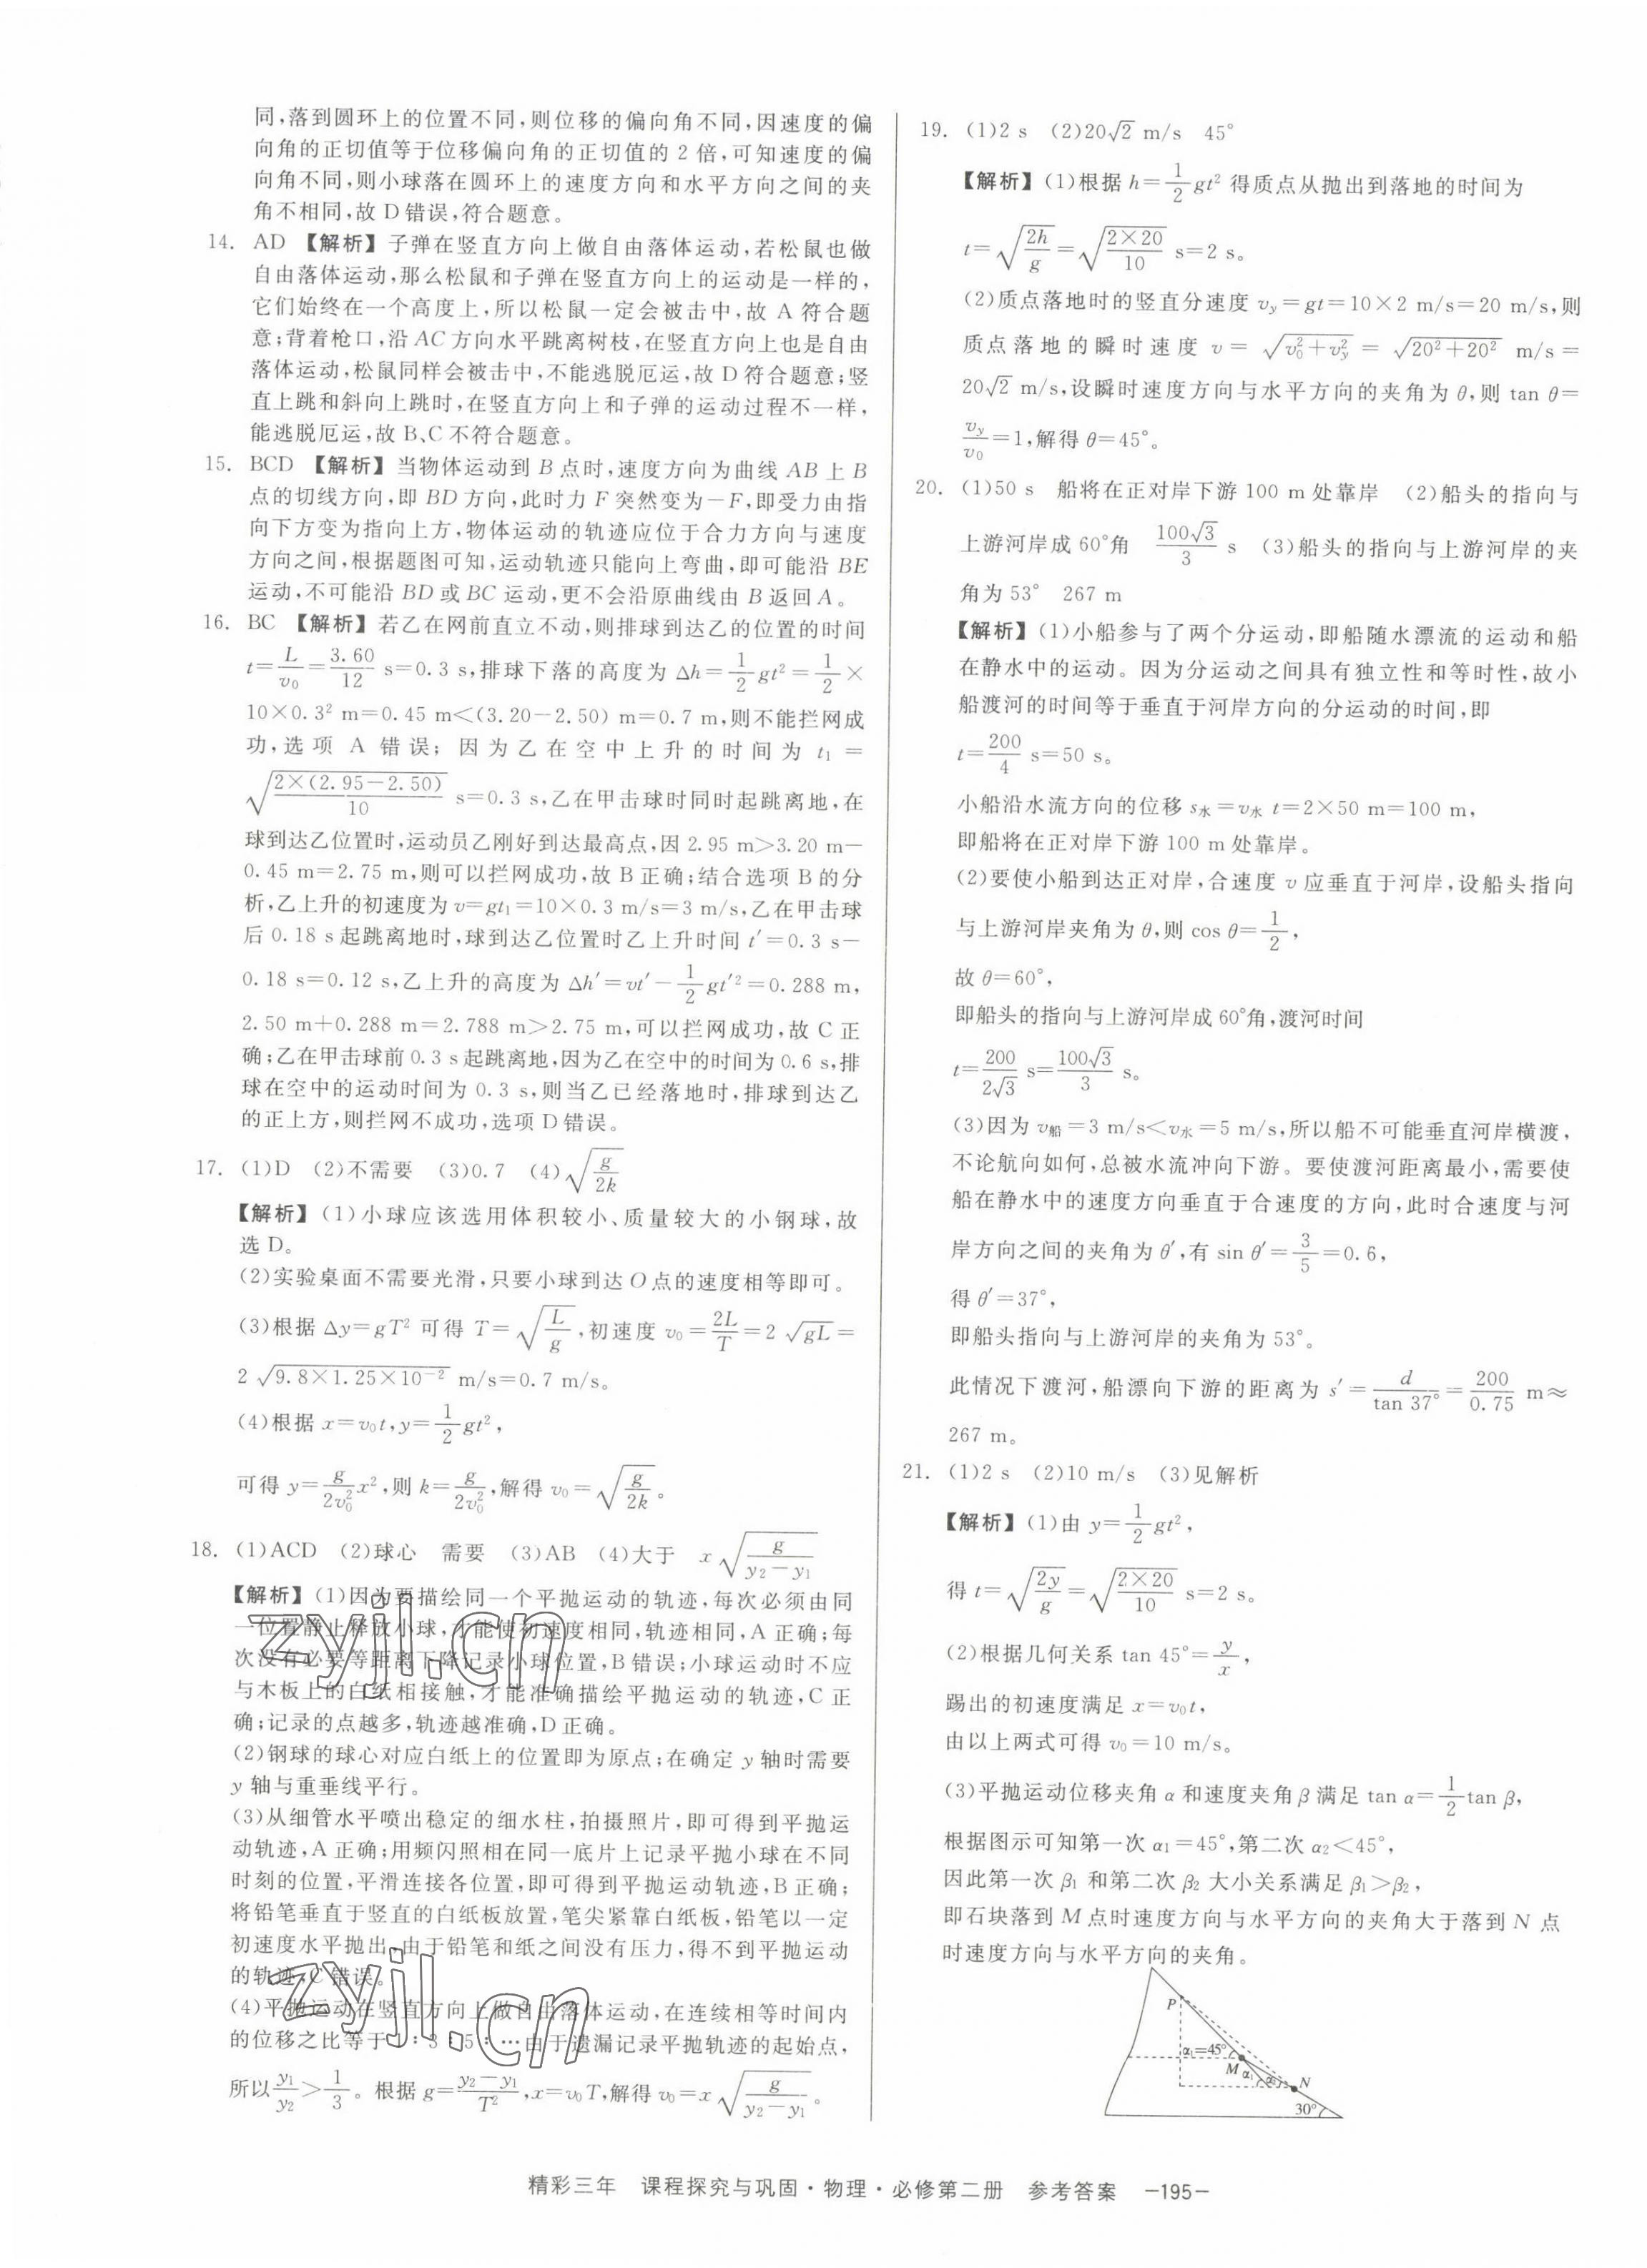 同,落到圆环上的位置不同,则位移的偏向角不同,因速度的偏
向角的正切值等于位移偏向角的正切值的 2 倍,可知速度的偏
向角不同,则小球落在圆环上的速度方向和水平方向之间的夹
角不相同,故 D 错误,符合题意。
14. AD 【解析】子弹在竖直方向上做自由落体运动,若松鼠也做
自由落体运动,那么松鼠和子弹在竖直方向上的运动是一样的,
它们始终在一个高度上,所以松鼠一定会被击中,故 A 符合题
意;背着枪口,沿 AC 方向水平跳离树枝,在竖直方向上也是自由
落体运动,松鼠同样会被击中,不能逃脱厄运,故 D 符合题意;竖
直上跳和斜向上跳时,在竖直方向上和子弹的运动过程不一样,
能逃脱厄运,故 B、C 不符合题意。
15. BCD 【解析】当物体运动到 B 点时,速度方向为曲线 AB 上 B
点的切线方向,即 BD 方向,此时力 F 突然变为－F,即受力由指
向下方变为指向上方,物体运动的轨迹应位于合力方向与速度
方向之间,根据题图可知,运动轨迹只能向上弯曲,即可能沿 BE
运动,不可能沿 BD 或 BC 运动,更不会沿原曲线由 B 返回 A。
16. BC 【解析】若乙在网前直立不动,则排球到达乙的位置的时间
t=L/v₀=3.60/12 s=0.3 s,排球下落的高度为 Δh=1/2 gt²=1/2×
10×0.3² m=0.45 m<(3.20－2.50) m=0.7 m,则不能拦网成
功,选项 A 错误;因为乙在空中上升的时间为 t₁=
√(2×(2.95－2.50)/10) s=0.3 s,乙在甲击球时同时起跳离地,在
球到达乙位置时,运动员乙刚好到达最高点,因 2.95 m>3.20 m－
0.45 m=2.75 m,则可以拦网成功,故 B 正确;结合选项 B 的分
析,乙上升的初速度为 v=gt₁=10×0.3 m/s=3 m/s,乙在甲击球
后 0.18 s 起跳离地时,球到达乙位置时乙上升时间 t′=0.3 s－
0.18 s=0.12 s,乙上升的高度为 Δh′=vt′－1/2 gt′²=0.288 m,
2.50 m+0.288 m=2.788 m>2.75 m,可以拦网成功,故 C 正
确;乙在甲击球前 0.3 s 起跳离地,因为乙在空中的时间为 0.6 s,排
球在空中的运动时间为 0.3 s,则当乙已经落地时,排球到达乙
的正上方,则拦网不成功,选项 D 错误。
17. (1)D (2)不需要 (3)0.7 (4)√(g/2k)
【解析】(1)小球应该选用体积较小、质量较大的小钢球,故
选 D。
(2)实验桌面不需要光滑,只要小球到达 O 点的速度相等即可。
(3)根据 Δy=gT² 可得 T=√(L/g),初速度 v₀=2L/T=2√(gL)=
2√(9.8×1.25×10⁻²) m/s=0.7 m/s。
(4)根据 x=v₀t,y=1/2 gt²,
可得 y=g/(2v₀²) x²,则 k=g/(2v₀²),解得 v₀=√(g/2k)。
18. (1)ACD (2)球心 需要 (3)AB (4)大于 x√(g/(y₂－y₁))
【解析】(1)因为要描绘同一个平抛运动的轨迹,每次必须由同
一位置静止释放小球,才能使初速度相同,轨迹相同,A 正确;每
次没有必要等距离下降记录小球位置,B 错误;小球运动时不应
与木板上的白纸相接触,才能准确描绘平抛运动的轨迹,C 正
确;记录的点越多,轨迹越准确,D 正确。
(2)钢球的球心对应白纸上的位置即为原点;在确定 y 轴时需要
y 轴与重垂线平行。
(3)从细管水平喷出稳定的细水柱,拍摄照片,即可得到平抛运
动轨迹,A 正确;用频闪照相在同一底片上记录平抛小球在不同
时刻的位置,平滑连接各位置,即可得到平抛运动轨迹,B 正确;
将铅笔垂直于竖直的白纸板放置,笔尖紧靠白纸板,铅笔以一定
初速度水平抛出,由于铅笔和纸之间没有压力,得不到平抛运动
的轨迹,C 错误。
(4)平抛运动在竖直方向上做自由落体运动,在连续相等时间内
的位移之比等于 1∶3∶5∶…由于遗漏记录平抛轨迹的起始点,
所以 y₁/y₂>1/3。根据 g=(y₂－y₁)/T²,x=v₀T,解得 v₀=x√(g/(y₂－y₁))。
19. (1)2 s (2)20√2 m/s 45°
【解析】(1)根据 h=1/2 gt² 得质点从抛出到落地的时间为
t=√(2h/g)=√(2×20/10) s=2 s。
(2)质点落地时的竖直分速度 vy=gt=10×2 m/s=20 m/s,则
质点落地的瞬时速度 v=√(v₀²+vy²)=√(20²+20²) m/s=
20√2 m/s,设瞬时速度方向与水平方向的夹角为 θ,则 tan θ=
vy/v₀=1,解得 θ=45°。
20. (1)50 s 船将在正对岸下游 100 m 处靠岸 (2)船头的指向与
上游河岸成 60°角 100√3/3 s (3)船头的指向与上游河岸的夹
角为 53° 267 m
【解析】(1)小船参与了两个分运动,即船随水漂流的运动和船
在静水中的运动。因为分运动之间具有独立性和等时性,故小
船渡河的时间等于垂直于河岸方向的分运动的时间,即
t=200/4 s=50 s。
小船沿水流方向的位移 s水=v水 t=2×50 m=100 m,
即船将在正对岸下游 100 m 处靠岸。
(2)要使小船到达正对岸,合速度 v 应垂直于河岸,设船头指向
与上游河岸夹角为 θ,则 cos θ=1/2,
故 θ=60°,
即船头的指向与上游河岸成 60°角,渡河时间
t=200/(2√3) s=100√3/3 s。
(3)因为 v船=3 m/s<v水=5 m/s,所以船不可能垂直河岸横渡,
不论航向如何,总被水流冲向下游。要使渡河距离最小,需要使
船在静水中的速度方向垂直于合速度的方向,此时合速度与河
岸方向之间的夹角为 θ′,有 sin θ′=3/5=0.6,
得 θ′=37°,
即船头指向与上游河岸的夹角为 53°。
此情况下渡河,船漂向下游的距离为 s′=d/tan 37°=200/0.75 m≈
267 m。
21. (1)2 s (2)10 m/s (3)见解析
【解析】(1)由 y=1/2 gt²,
得 t=√(2y/g)=√(2×20/10) s=2 s。
(2)根据几何关系 tan 45°=y/x,
踢出的初速度满足 x=v₀t,
由以上两式可得 v₀=10 m/s。
(3)平抛运动位移夹角 α 和速度夹角 β 满足 tan α=1/2 tan β,
根据图示可知第一次 α₁=45°,第二次 α₂<45°,
因此第一次 β₁ 和第二次 β₂ 大小关系满足 β₁>β₂,
即石块落到 M 点时速度方向与水平方向的夹角大于落到 N 点
时速度方向与水平方向的夹角。
P
α₁=45°
M α₁ α₂ N
30°
zyjl.cn
zyjl.cn
精彩三年 课程探究与巩固·物理·必修第二册 参考答案 —195—